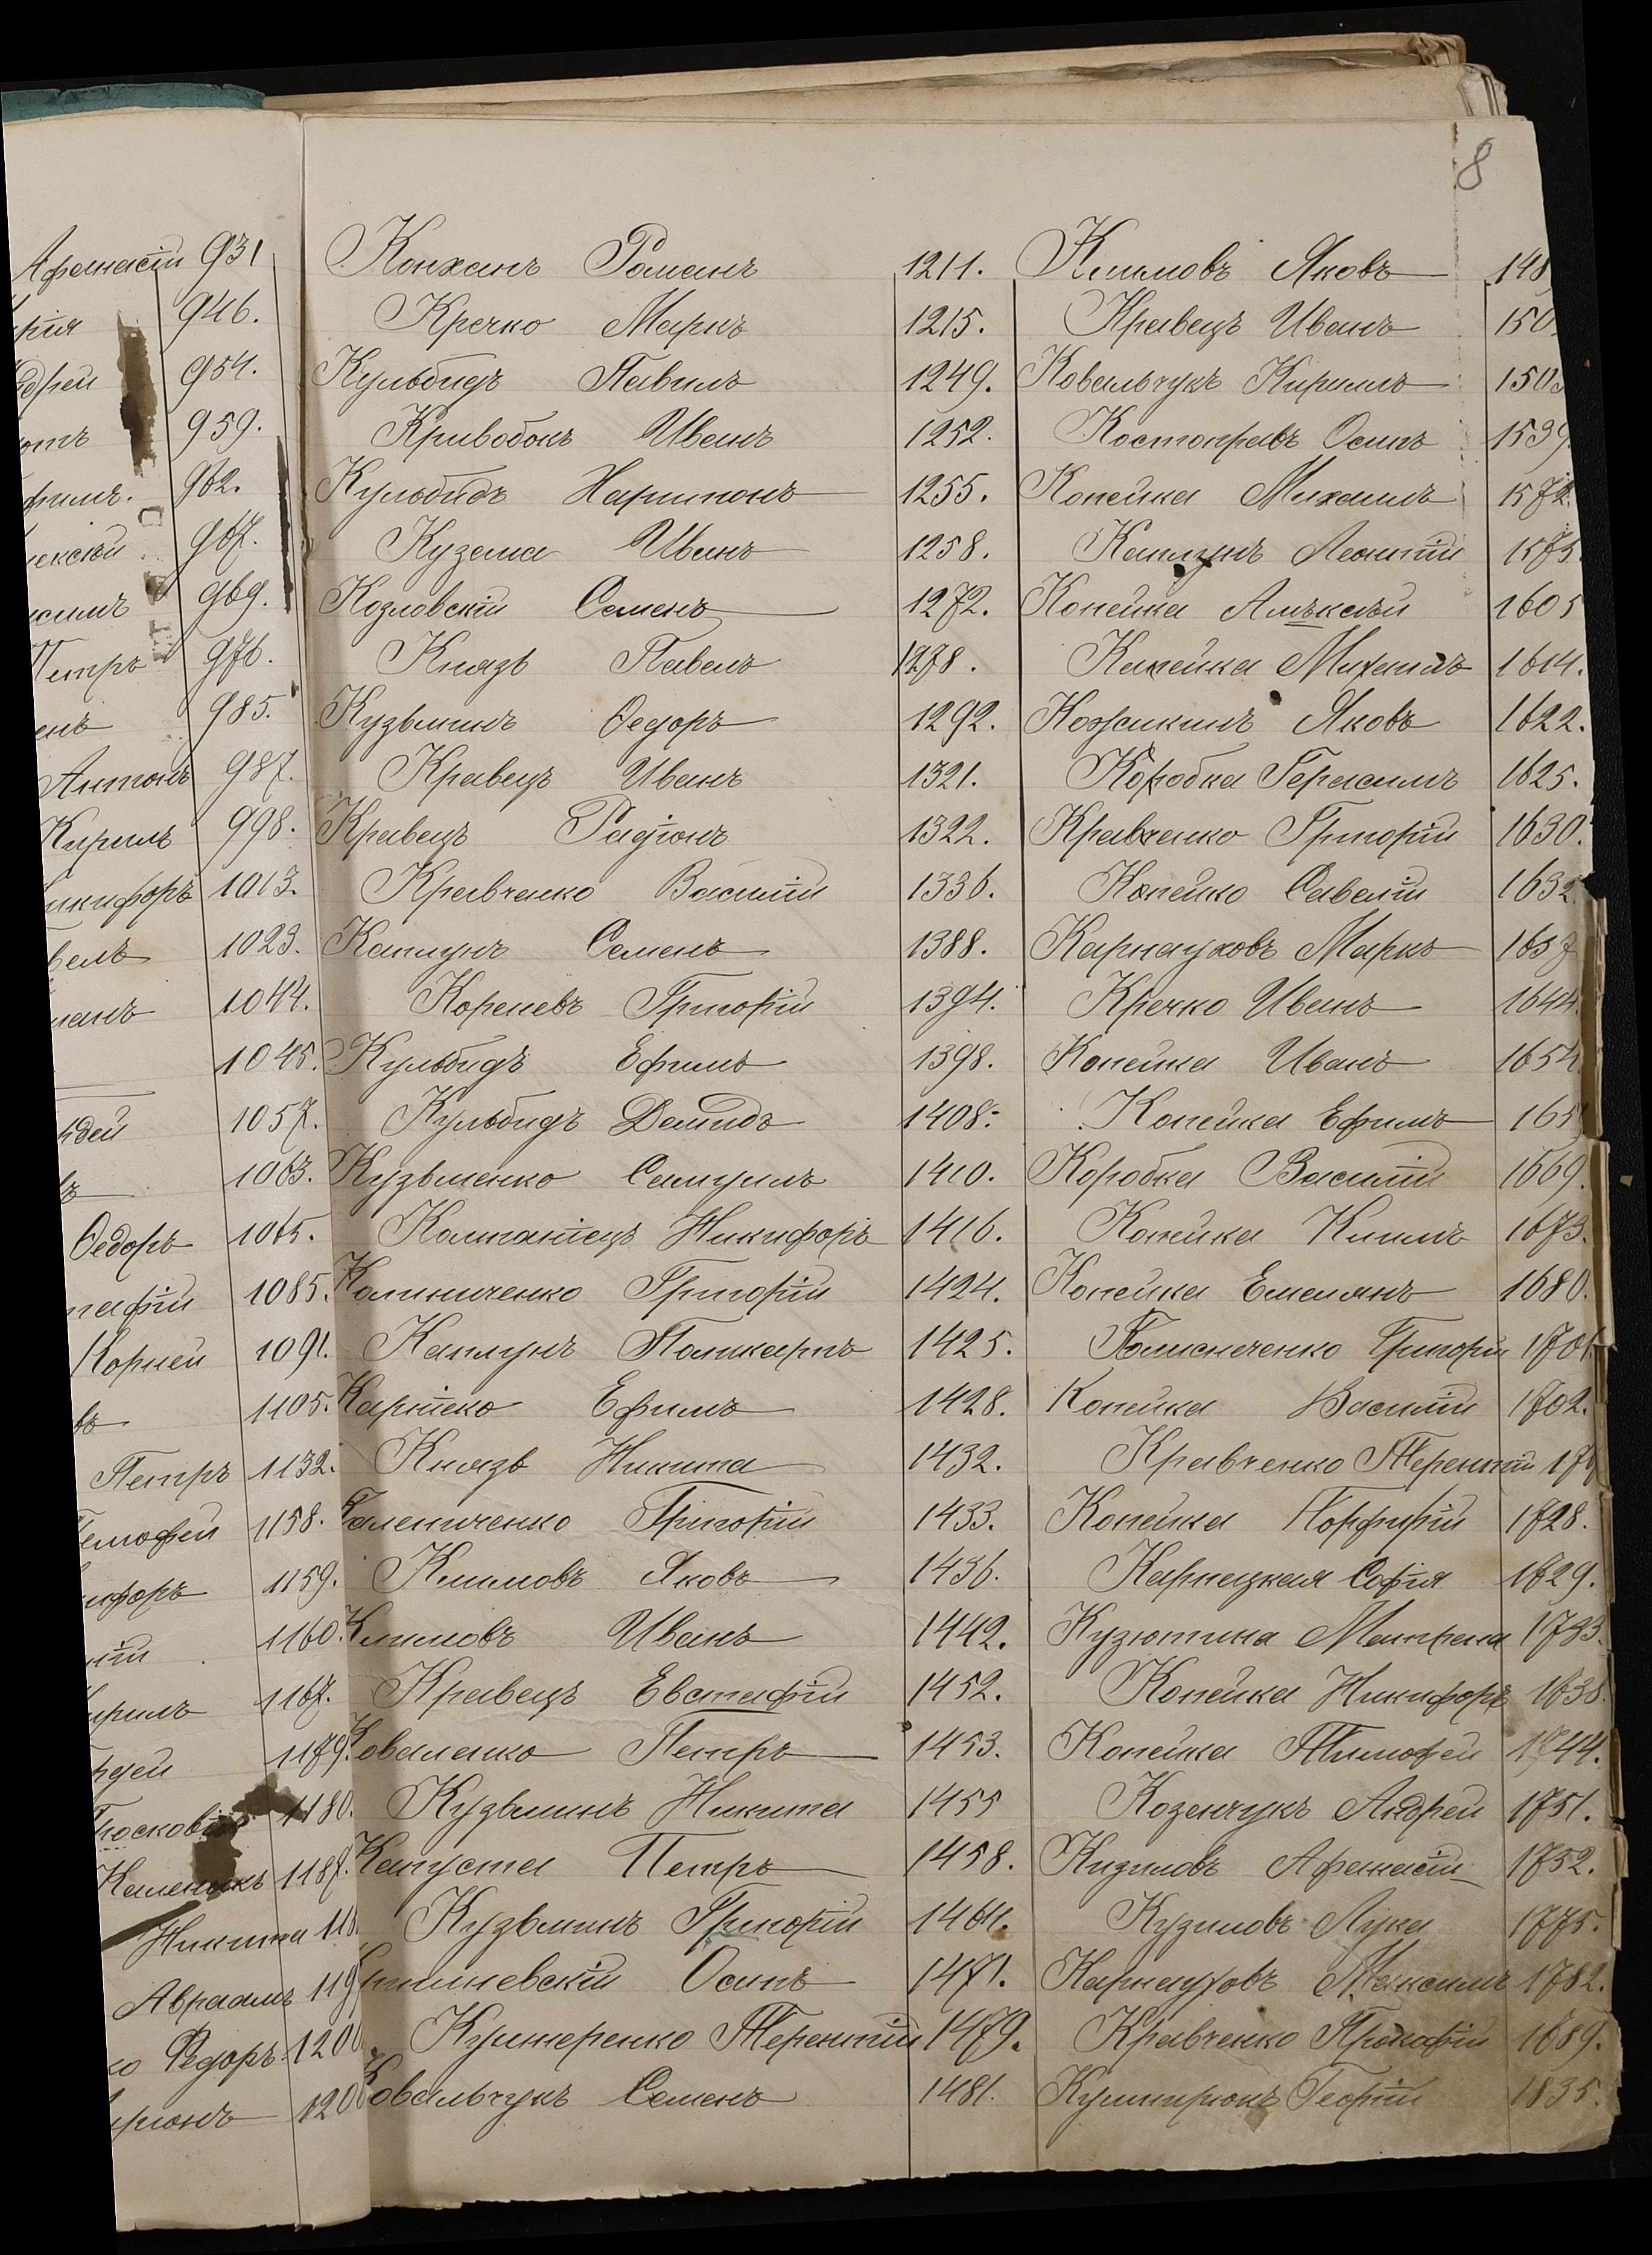 8
Афанасій 931
рія 946.
дрей 954.
959.
фимъ. 962.
лексѣй 967.
симъ 969.
Петръ 976.
енъ 985.
Антонъ 987.
Кирилъ 998.
икифоръ 1013.
велъ 1023.
манъ 1044.
1045.
ндей 1057.
въ 1063.
Ѳедоръ 1065.
тафій 1085.
Корней 1091.
въ 1105.
Петръ 1132.
Тимофей 1158.
ифоръ 1159.
лій 1160.
ирилъ 1167.
ндрей 1179.
1180.
Каленикъ 1187.
Никита 118
Авраамъ 119
ко Ѳедоръ 120
аріонъ 120
Конханъ Романъ 1211.
Кречко Маркъ 1215.
Кульбидъ Павилъ 1249.
Кривобокъ Иванъ 1252.
Кульбидъ Харитонъ 1255.
Кузема Иванъ 1258.
Козловскій Семенъ 1272.
Князь Павелъ 1278.
Кузьминъ Ѳедоръ 1292.
Кравецъ Иванъ 1321.
Кравецъ Радіонъ 1322.
Кравченко Василій 1336.
Каплунъ Семенъ 1388.
Кореневъ Григорій 1394.
Кульбидъ Ефимъ 1398.
Кульбидъ Демидъ 1408.
Кузьменко Самуилъ 1410.
Компаніецъ Никифоръ 1416.
Калиниченко Григорій 1424.
Каплунъ Поликарпъ 1425.
Карпеко Ефимъ 1428.
Князь Никита 1432.
Калениченко Григорій 1433.
Климовъ Яковъ 1436.
Климовъ Иванъ 1442.
Кравецъ Евстафій 1452.
Коваленко Петръ 1453.
Кузьминъ Никита 1455
Капуста Петръ 1458.
Кузьминъ Григорій 1464.
Осипъ 1471.
Кушнеренко Терентій 1479.
Ковальчукъ Семенъ 1481.
Климовъ Яковъ 148
Кравецъ Иванъ 150
Ковальчукъ Кирилъ 150
Костоправъ Осипъ 1539
Копейка Михаилъ 1572.
Каплунъ Леонтій 1575
Копейка Алѣксѣй 1605
Капейка Михаилъ 1614.
Ножикинъ Яковъ 1622.
Коробка Герасимъ 1625.
Кравченко Григорій 1630.
Копейко Савелій 1632
Карнауховъ Марко 1637
Кречко Иванъ 1644.
Копейка Иванъ 1654
Копейка Ефимъ 165
Коробка Василій 1669.
Копейка Климъ 1673.
Копейка Емельянъ 1680.
Григорій 1701
Копейка Василій 1702.
Кравченко Терентій 170
Копейка Порфирій 1728.
Карпецкая Софія 1729.
Кузютина Матрена 1733.
Копейка Никифоръ 1738.
Копейка Тимофей 1744.
Козенчукъ Андрей 1751.
Кизиловъ Афанасій 1752.
Кузиловъ Лука 1775.
Карнауховъ Максимъ 1782.
Кравченко Прокофій 1689.
Георгій 1835.